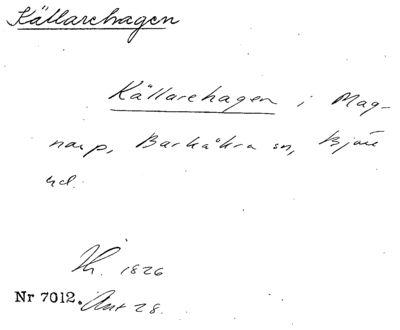 Källarehagen
Källarehagen i Mag-
narp, Barkåkra sn, Bjäre
hd.
Th. 1826
Nr 7012. Ant 28.